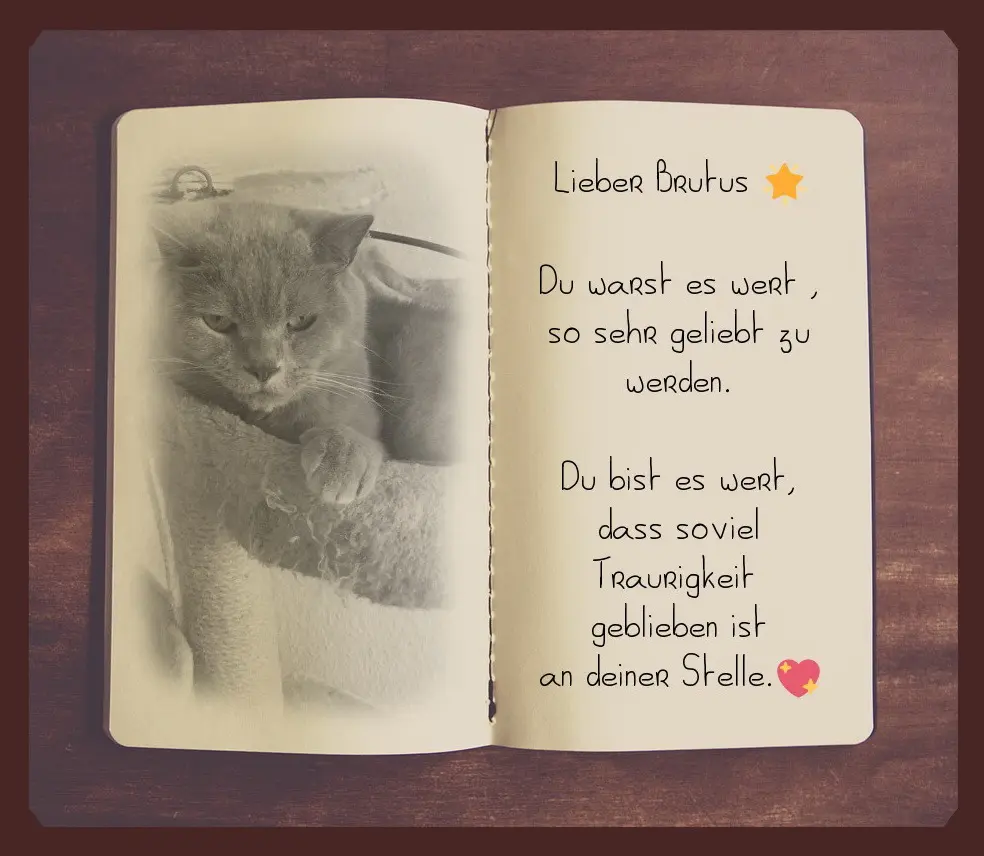 Lieber Brutus ⭐
Du warst es wert ,
so sehr geliebt zu
werden.
Du bist es wert,
dass soviel
Traurigkeit
geblieben ist
an deiner Stelle.💖